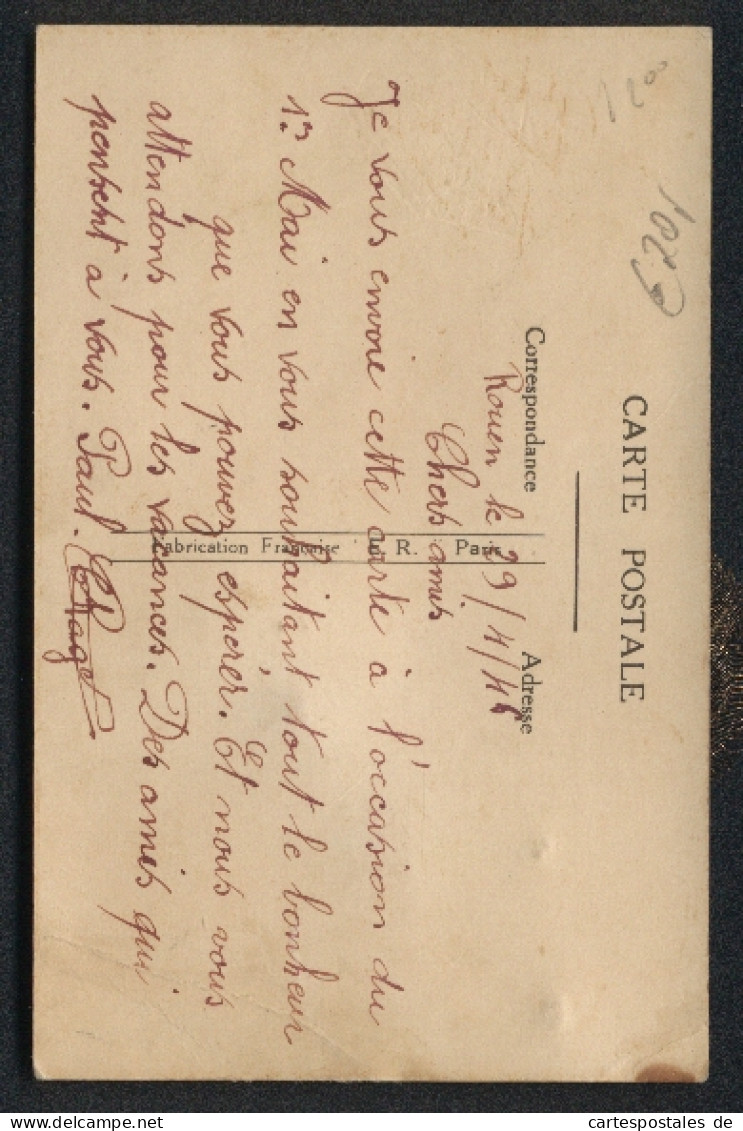 CARTE POSTALE
Correspondance
Adresse
Fabrication Française E. R. Paris
Rouen le 29/4/46
Chers amis
Je vous envoie cette carte à l'occasion du
1er Mai en vous souhaitant tout le bonheur
que vous pouvez espérer. Et nous vous
attendons pour les vacances. Des amis qui
pensent à vous. Paul.
cartespostales de